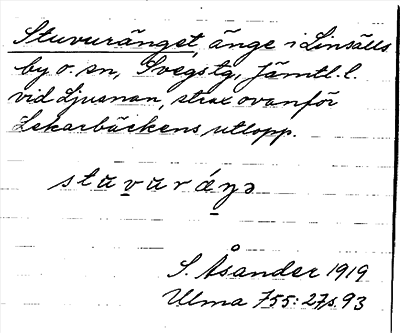 Stuvuränget, änge i Linsälls
by o. sn, Svegs tg, Jämtl. l.
vid Ljusnan, strax ovanför
Lekarbäckens utlopp.
stuvuráŋə
S. Åsander 1919
Ulma 755:27 s. 93